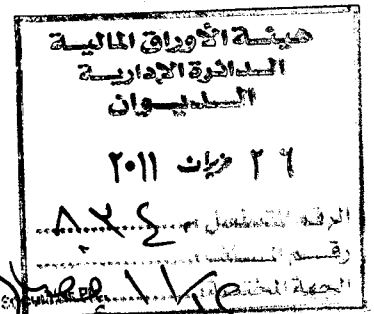 هيئة الأوراق المالية
الدائرة الإدارية
الديوان
٢٦ حزيران ٢٠١١
الرقم المتسلسل
رقم الملف
الجهة المختصة